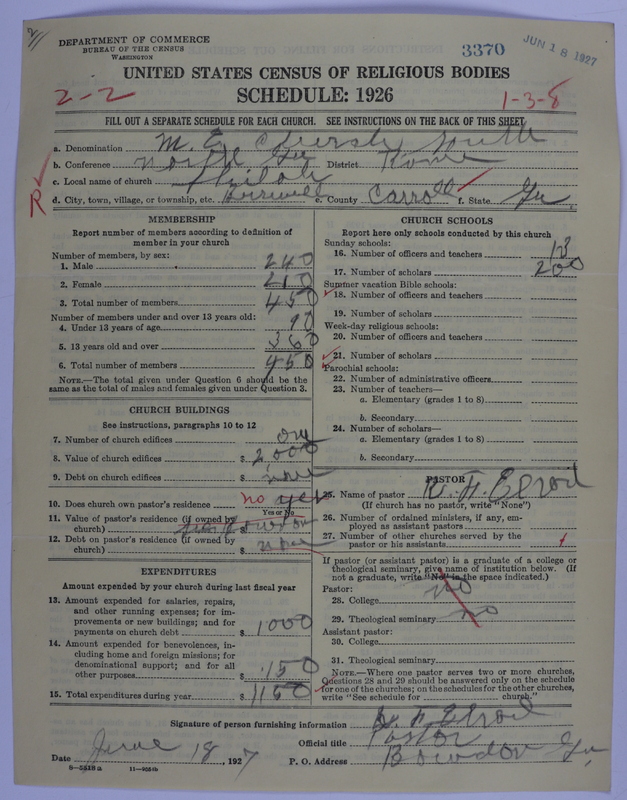 2
DEPARTMENT OF COMMERCE
BUREAU OF THE CENSUS
WASHINGTON
3370
JUN 18 1927
UNITED STATES CENSUS OF RELIGIOUS BODIES
SCHEDULE: 1926
2-2
1-3-8
FILL OUT A SEPARATE SCHEDULE FOR EACH CHURCH. SEE INSTRUCTIONS ON THE BACK OF THIS SHEET
a. Denomination M. E. Church South
b. Conference North Ga District Rome
c. Local name of church Shiloh
R
d. City, town, village, or township, etc. e. County Carroll f. State Ga.
MEMBERSHIP
Report number of members according to definition of
member in your church
Number of members, by sex:
1. Male 240
2. Female 210
3. Total number of members 450
Number of members under and over 13 years old:
4. Under 13 years of age 90
5. 13 years old and over 360
6. Total number of members 450
NOTE.—The total given under Question 6 should be the
same as the total of males and females given under Question 3.
CHURCH BUILDINGS
See instructions, paragraphs 10 to 12
7. Number of church edifices one
8. Value of church edifices $ 2000
9. Debt on church edifices $ none
10. Does church own pastor's residence no yes
Yes or No
11. Value of pastor's residence (if owned by
church) $
12. Debt on pastor's residence (if owned by
church) $ none
EXPENDITURES
Amount expended by your church during last fiscal year
13. Amount expended for salaries, repairs,
and other running expenses; for im-
provements or new buildings; and for
payments on church debt $ 1000
14. Amount expended for benevolences, in-
cluding home and foreign missions; for
denominational support; and for all
other purposes $ 150
15. Total expenditures during year $ 1150
CHURCH SCHOOLS
Report here only schools conducted by this church
Sunday schools:
16. Number of officers and teachers 13
17. Number of scholars 200
Summer vacation Bible schools:
18. Number of officers and teachers
19. Number of scholars
Week-day religious schools:
20. Number of officers and teachers
21. Number of scholars
Parochial schools:
22. Number of administrative officers
23. Number of teachers—
a. Elementary (grades 1 to 8)
b. Secondary
24. Number of scholars—
a. Elementary (grades 1 to 8)
b. Secondary
PASTOR
25. Name of pastor H. Elrod
(If church has no pastor, write "None")
26. Number of ordained ministers, if any, em-
ployed as assistant pastors
27. Number of other churches served by the
pastor or his assistants
If pastor (or assistant pastor) is a graduate of a college or
theological seminary, give name of institution below. (If
not a graduate, write "No" in the space indicated.)
Pastor:
28. College no
29. Theological seminary no
Assistant pastor:
30. College
31. Theological seminary
NOTE.—Where one pastor serves two or more churches,
Questions 28 and 29 should be answered only on the schedule
for one of the churches; on the schedules for the other churches,
write "See schedule for church."
Signature of person furnishing information H. Elrod
Official title Pastor
Date June 18, 1927 P. O. Address Bowdon Ga,
8—5518a 11—9554b